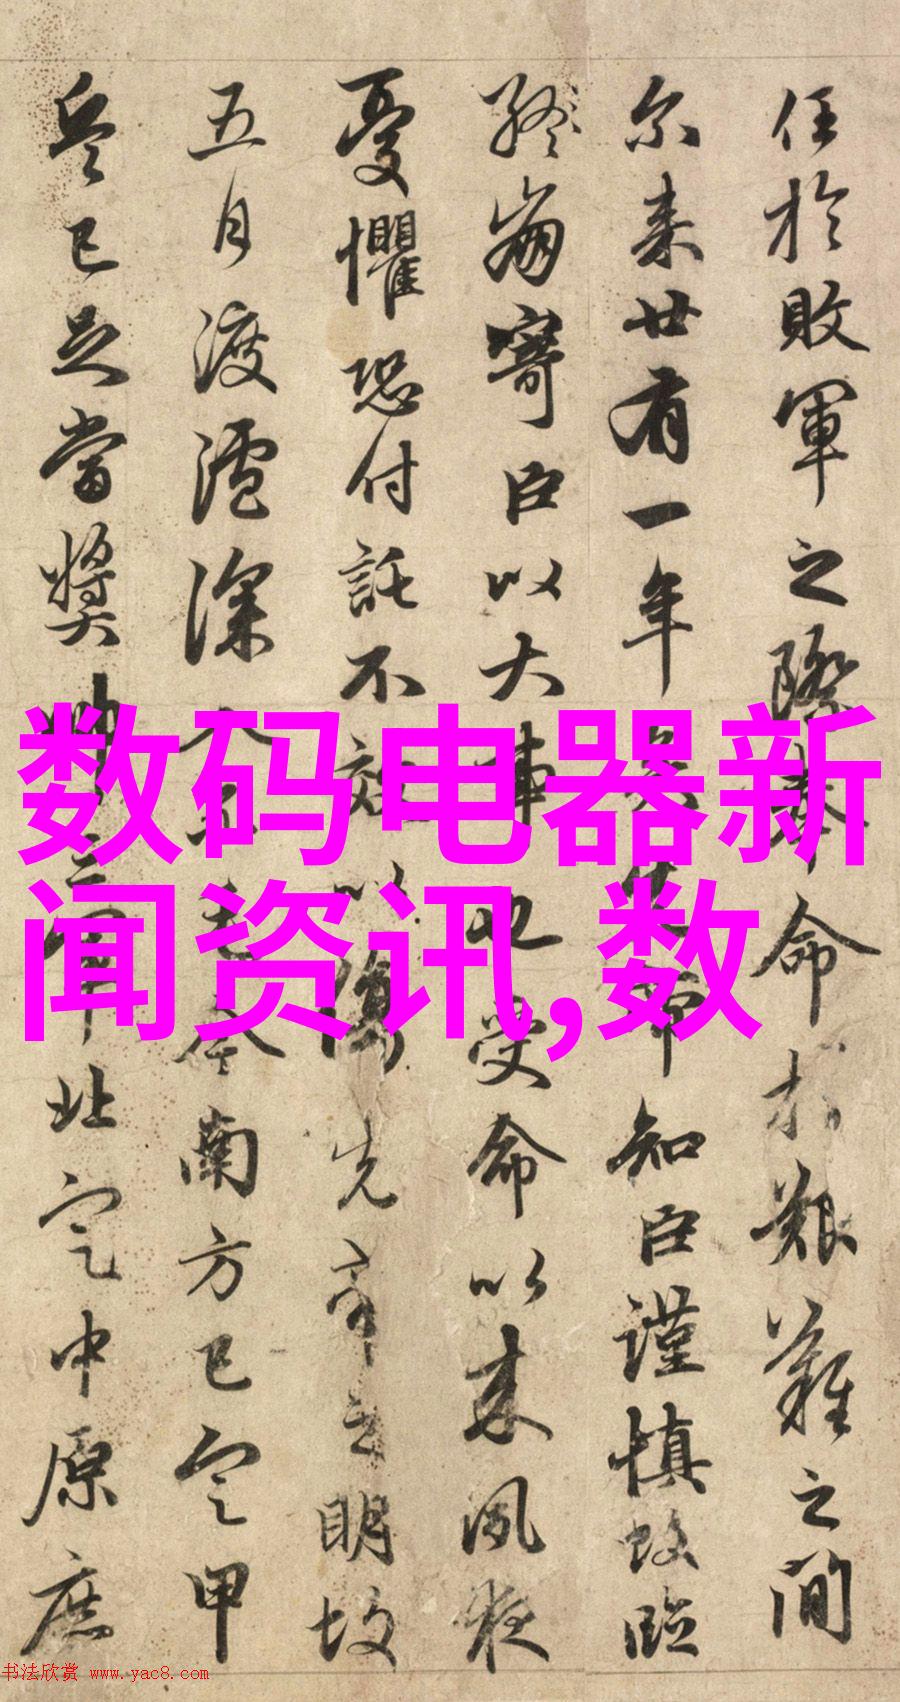 任於敗軍之際奉命於艱難之間
尔来廿有一年矣先帝知臣謹慎故臨
終崩寄臣以大事也受命以来夙夜
憂懼恐付託不效以傷先帝之明故
五月渡瀘深入不毛今南方已定甲
兵已足當奬帥三軍北定中原庶
数码电器新
闻资讯,数
书法欣赏 www.yac8.com